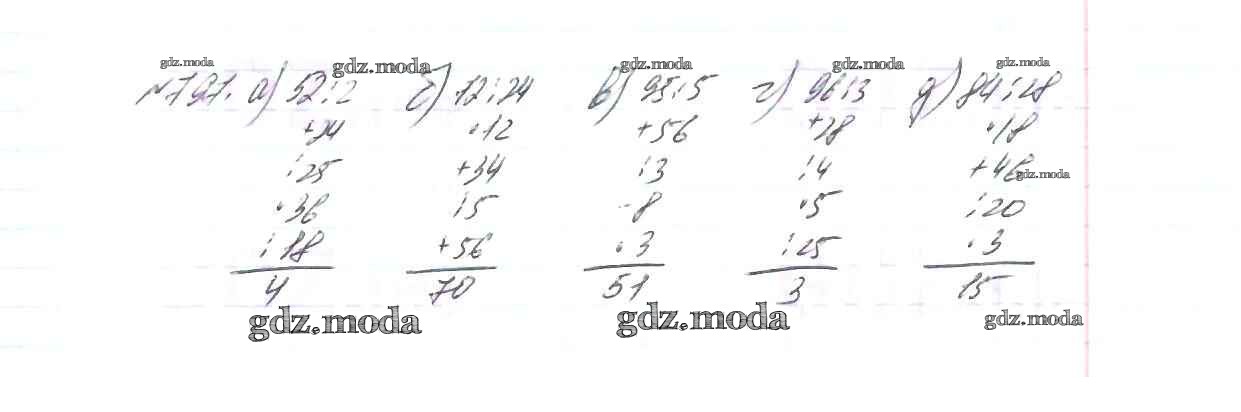 gdz.moda gdz.moda gdz.moda gdz.moda gdz.moda
№791. а) 52:2 б) 72:24 в) 95:5 г) 96:3 д) 84:28
+24 ·12 +56 +28 ·18
:25 +34 :3 :4 +46 gdz.moda
·36 :5 -8 ·5 :20
:18 +56 ·3 :25 ·3
4 70 51 3 15
gdz.moda gdz.moda gdz.moda